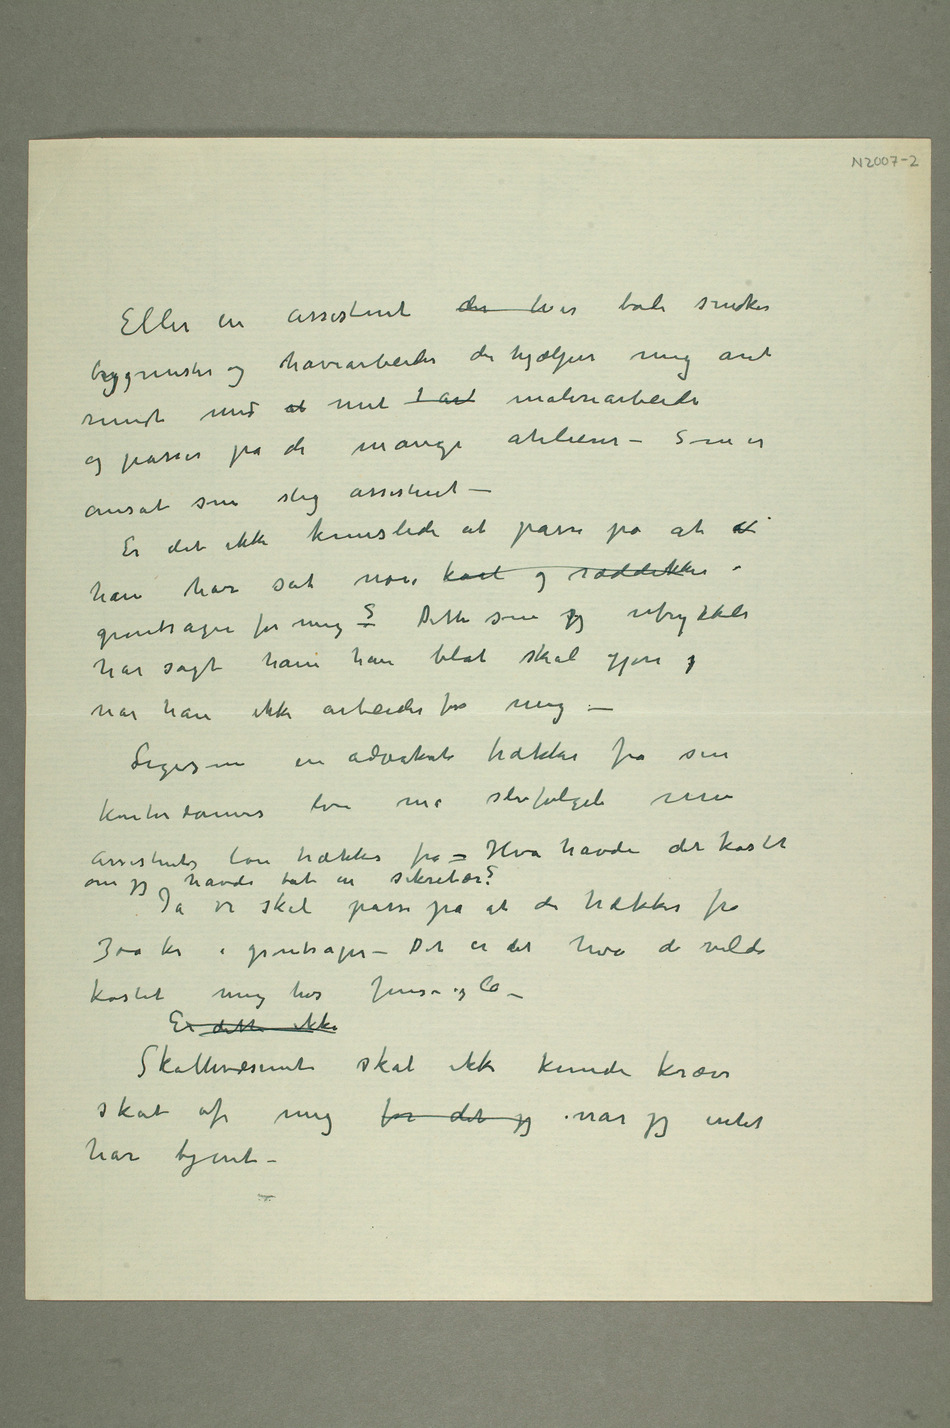 N2007-2
Eller en assistent der hver både snedker
bygmester og havearbeider der hjælper mig ant
rundt med at mit t art malerarbeide
og passer på de mange atelierer – Som er
ansat som slig assistent –
Er det ikke kunstlede at passe på at at
han har sat noen kaal og ræddikker
grøntsager for mig –? Dette som jeg utrykkeli
har sagt ham han blot skal gjøre
når han ikke arbeider for mig –
Ligesom en advokat trækker fra sin
kontordames løn må selvfølgeli min
assistents løn trækkes fra – Hva havde det kostet
om jeg havde tat en sekretær?
Ja vi skal passe på at de trækker fra
300 kr i grøntsager – Det er det hva de vilde
kostet mig hos Jensen og Co –
Er dette ikke
Skattevæsenet skal ikke kunde kræve
skat af mig for det jeg når jeg intet
har tjent –